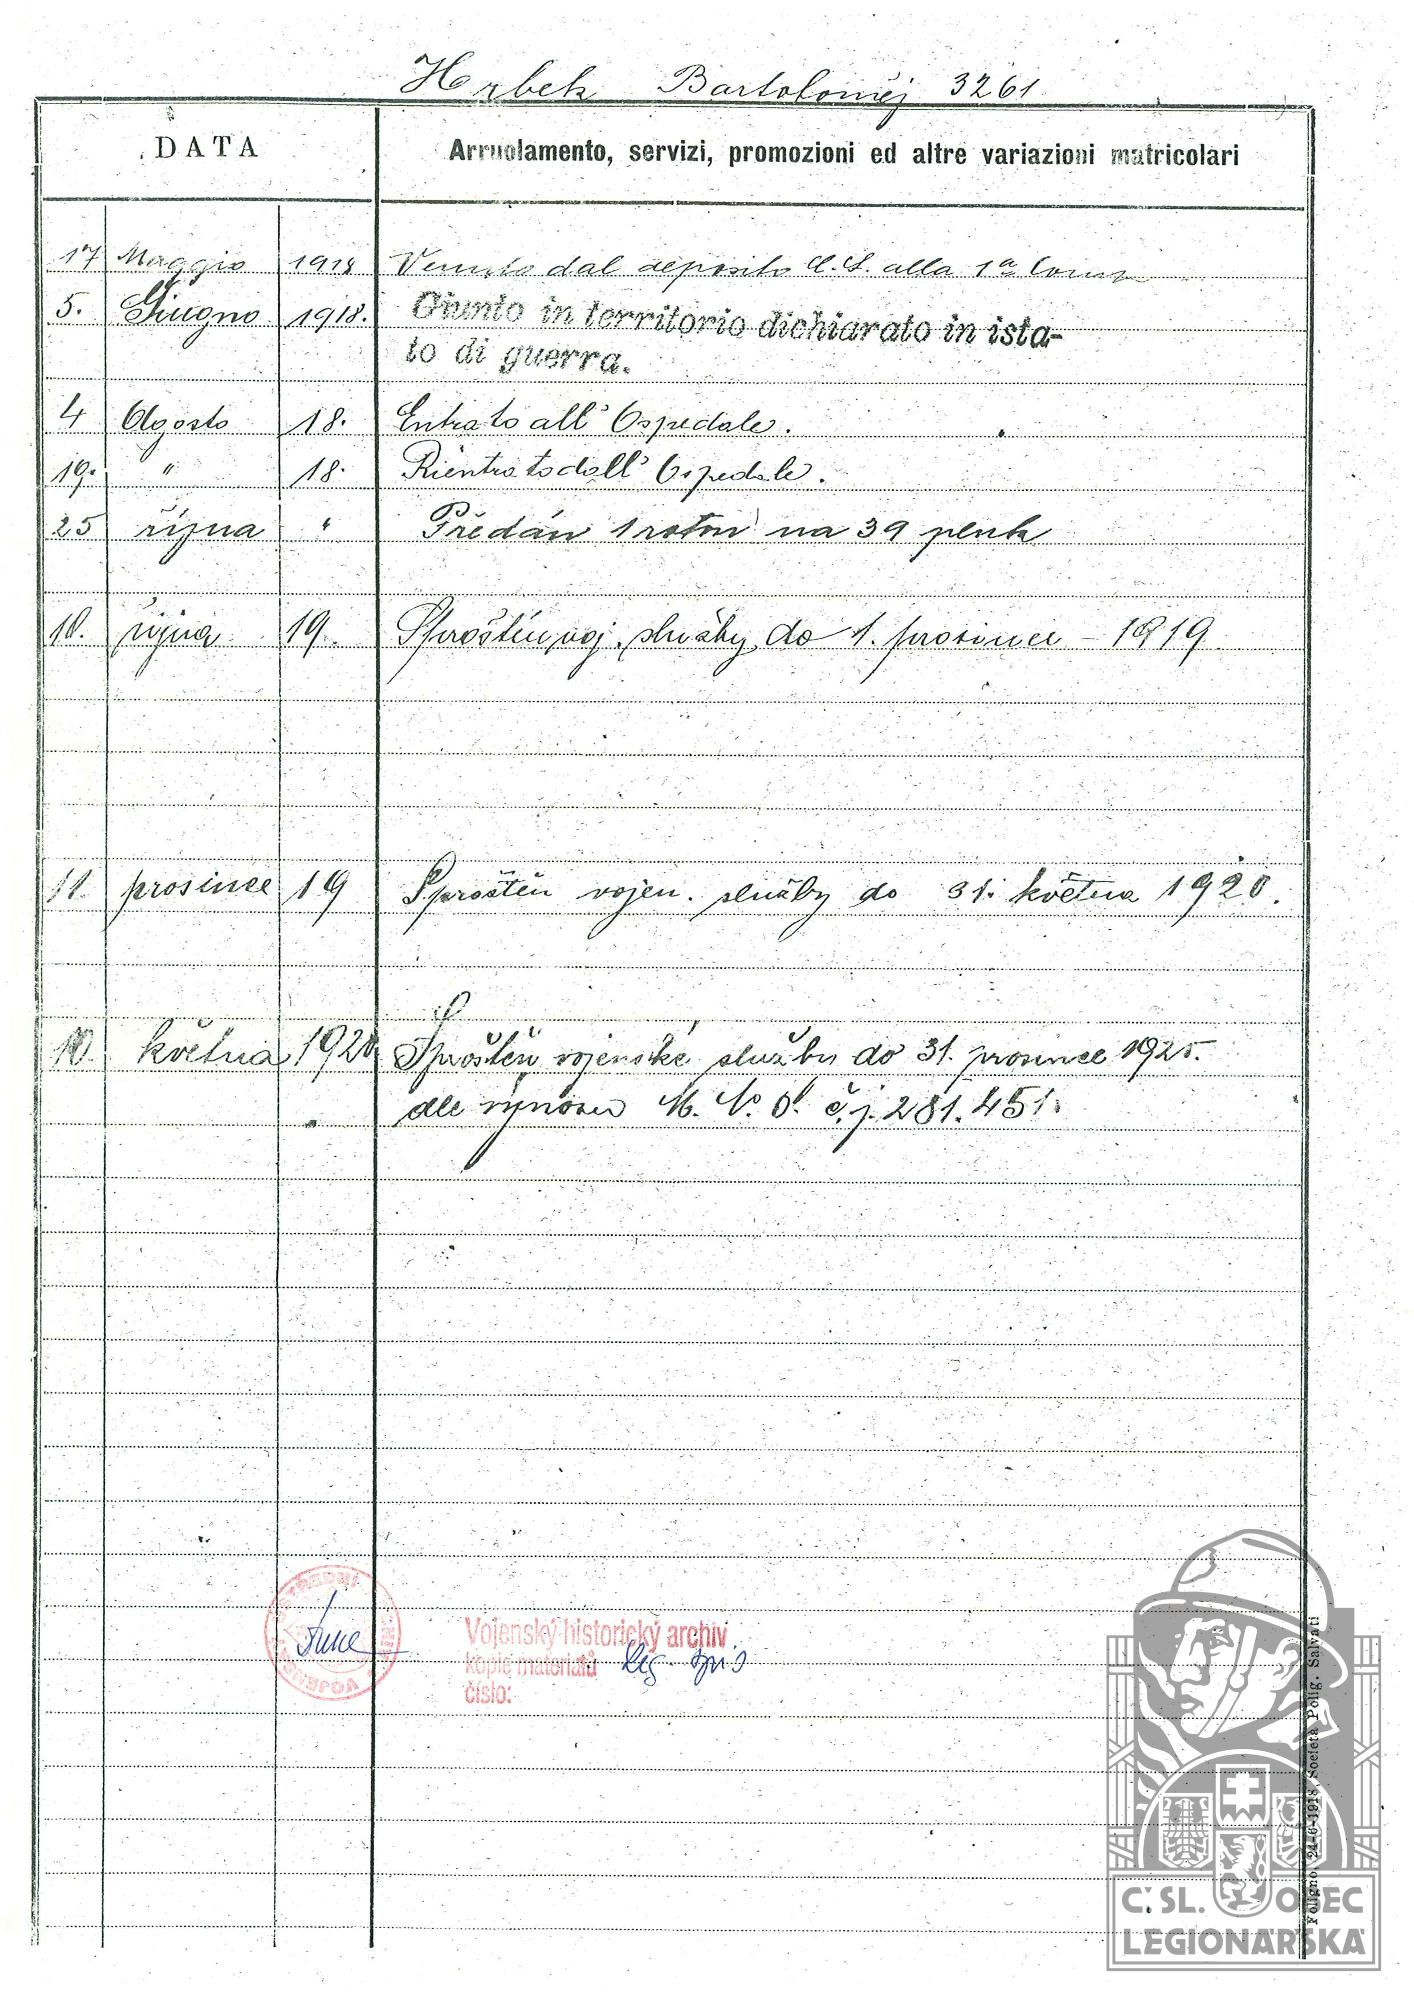 Hrbek Bartoloměj 3261
DATA
Arruolamento, servizi, promozioni ed altre variazioni matricolari
17 Maggio 1918 Venuto dal deposito C.S. alla 1a Comp
5. Giugno 1918. Giunto in territorio dichiarato in ista-
to di guerra.
4 Agosto 18. Entrato all' Ospedale.
19. " 18. Rientrato dall' Ospedale.
25 října " Předán 1 rotou na 39 pluk
10. října 19. Sproštěn voj. služby do 1. prosince - 1919
11. prosince 19 Sproštěn vojen. služby do 31. května 1920.
10. května 1920 Sproštěn vojenské služby do 31. prosince 1920.
dle výnosu M. N. O. č.j. 281.451.
Vojenský historický archiv
kopie materiálů leg. spis
číslo:
Foligno, 24-6-1918, Società Polig. Salvati
Č SL. OBEC
LEGIONÁŘSKÁ